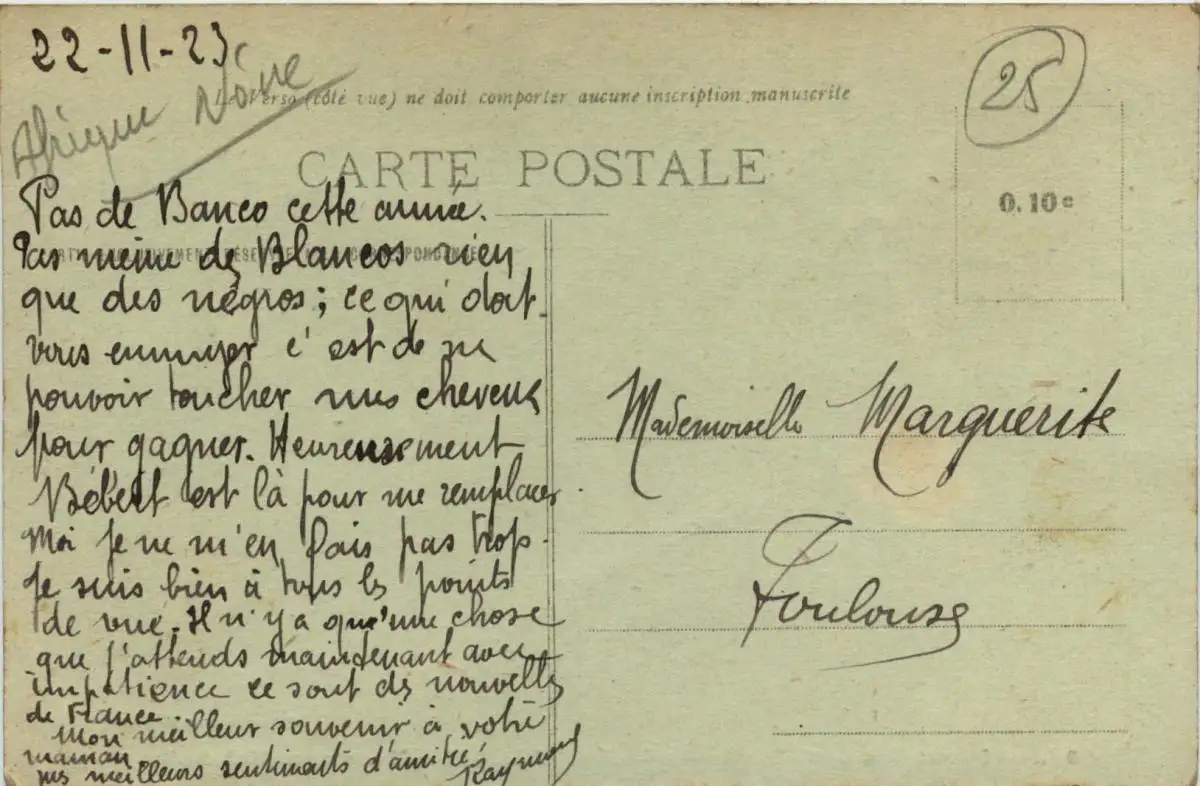 22-11-23
Afrique Noire
Le Verso (côté vue) ne doit comporter aucune inscription manuscrite
25
CARTE POSTALE
0.10 c
Pas de Banco cette année.
Pas même de Blancos rien
que des négros ; ce qui doit
vous ennuyer c'est de ne
pouvoir toucher mes cheveux
pour gagner. Heureusement
Bébert est là pour me remplacer
Moi je ne m'en fais pas trop.
Je suis bien à tous les points
de vue. Il n'y a qu'une chose
que j'attends maintenant avec
impatience ce sont des nouvelles
de France.
Mon meilleur souvenir à votre
maman.
mes meilleurs sentiments d'amitié
Raymond
Mademoiselle Marguerite
Toulouse